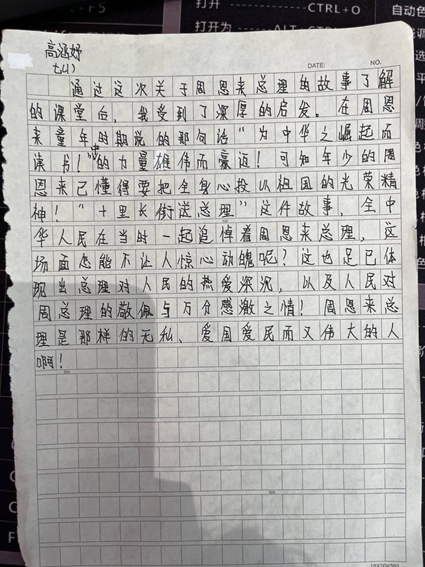 打开 CTRL+O
打开为 ALT+CTRL+
自动色
F5
高涵妤
七(1)
DATE: NO.
通过这次关于周恩来总理的故事了解
的课堂后，我受到了深厚的启发。在周恩
来童年时期说的那句话“为中华之崛起而
读书！”中的力量雄伟而豪迈！可知年少的周
恩来已懂得要把全身心投以祖国的光荣精
神！“十里长街送总理”这件故事，全中
华人民在当时一起追悼着周恩来总理，这
场面怎能不让人惊心动魄呢？这也足已体
现出总理对人民的热爱深沉，以及人民对
周总理的敬佩与万分感激之情！周恩来总
理是那样的无私、爱国爱民而又伟大的人
啊！